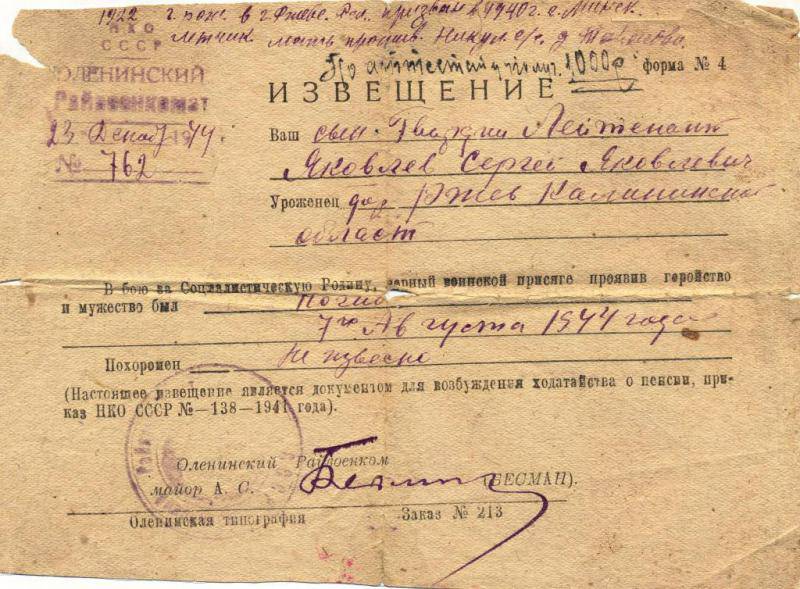 1922 г. рож. в г. Ржеве. призван в 1940 г. г. Минск.
летчик мать прожив. Никул. с/с. д.
НКО
СССР
По аттестату получ. 1000 р форма № 4
ОЛЕНИНСКИЙ
Райвоенкомат
ИЗВЕЩЕНИЕ
23 Декаб 1944 г.
№ 762
Ваш сын. Гвардии Лейтенант
Яковлев Сергей Яковлевич
Уроженец гор Ржев Калининской
област
В бою за Социалистическую Родину, верный воинской присяге проявив геройство
и мужество был погиб
7го Августа 1944 года
Похоронен Не извесно
(Настоящее извещение является документом для возбуждения ходатайства о пенсии, при-
каз НКО СССР №—138—1941 года).
Оленинский Райвоенком
майор А. С. (БЕСМАН).
Оленинская типография Заказ № 213